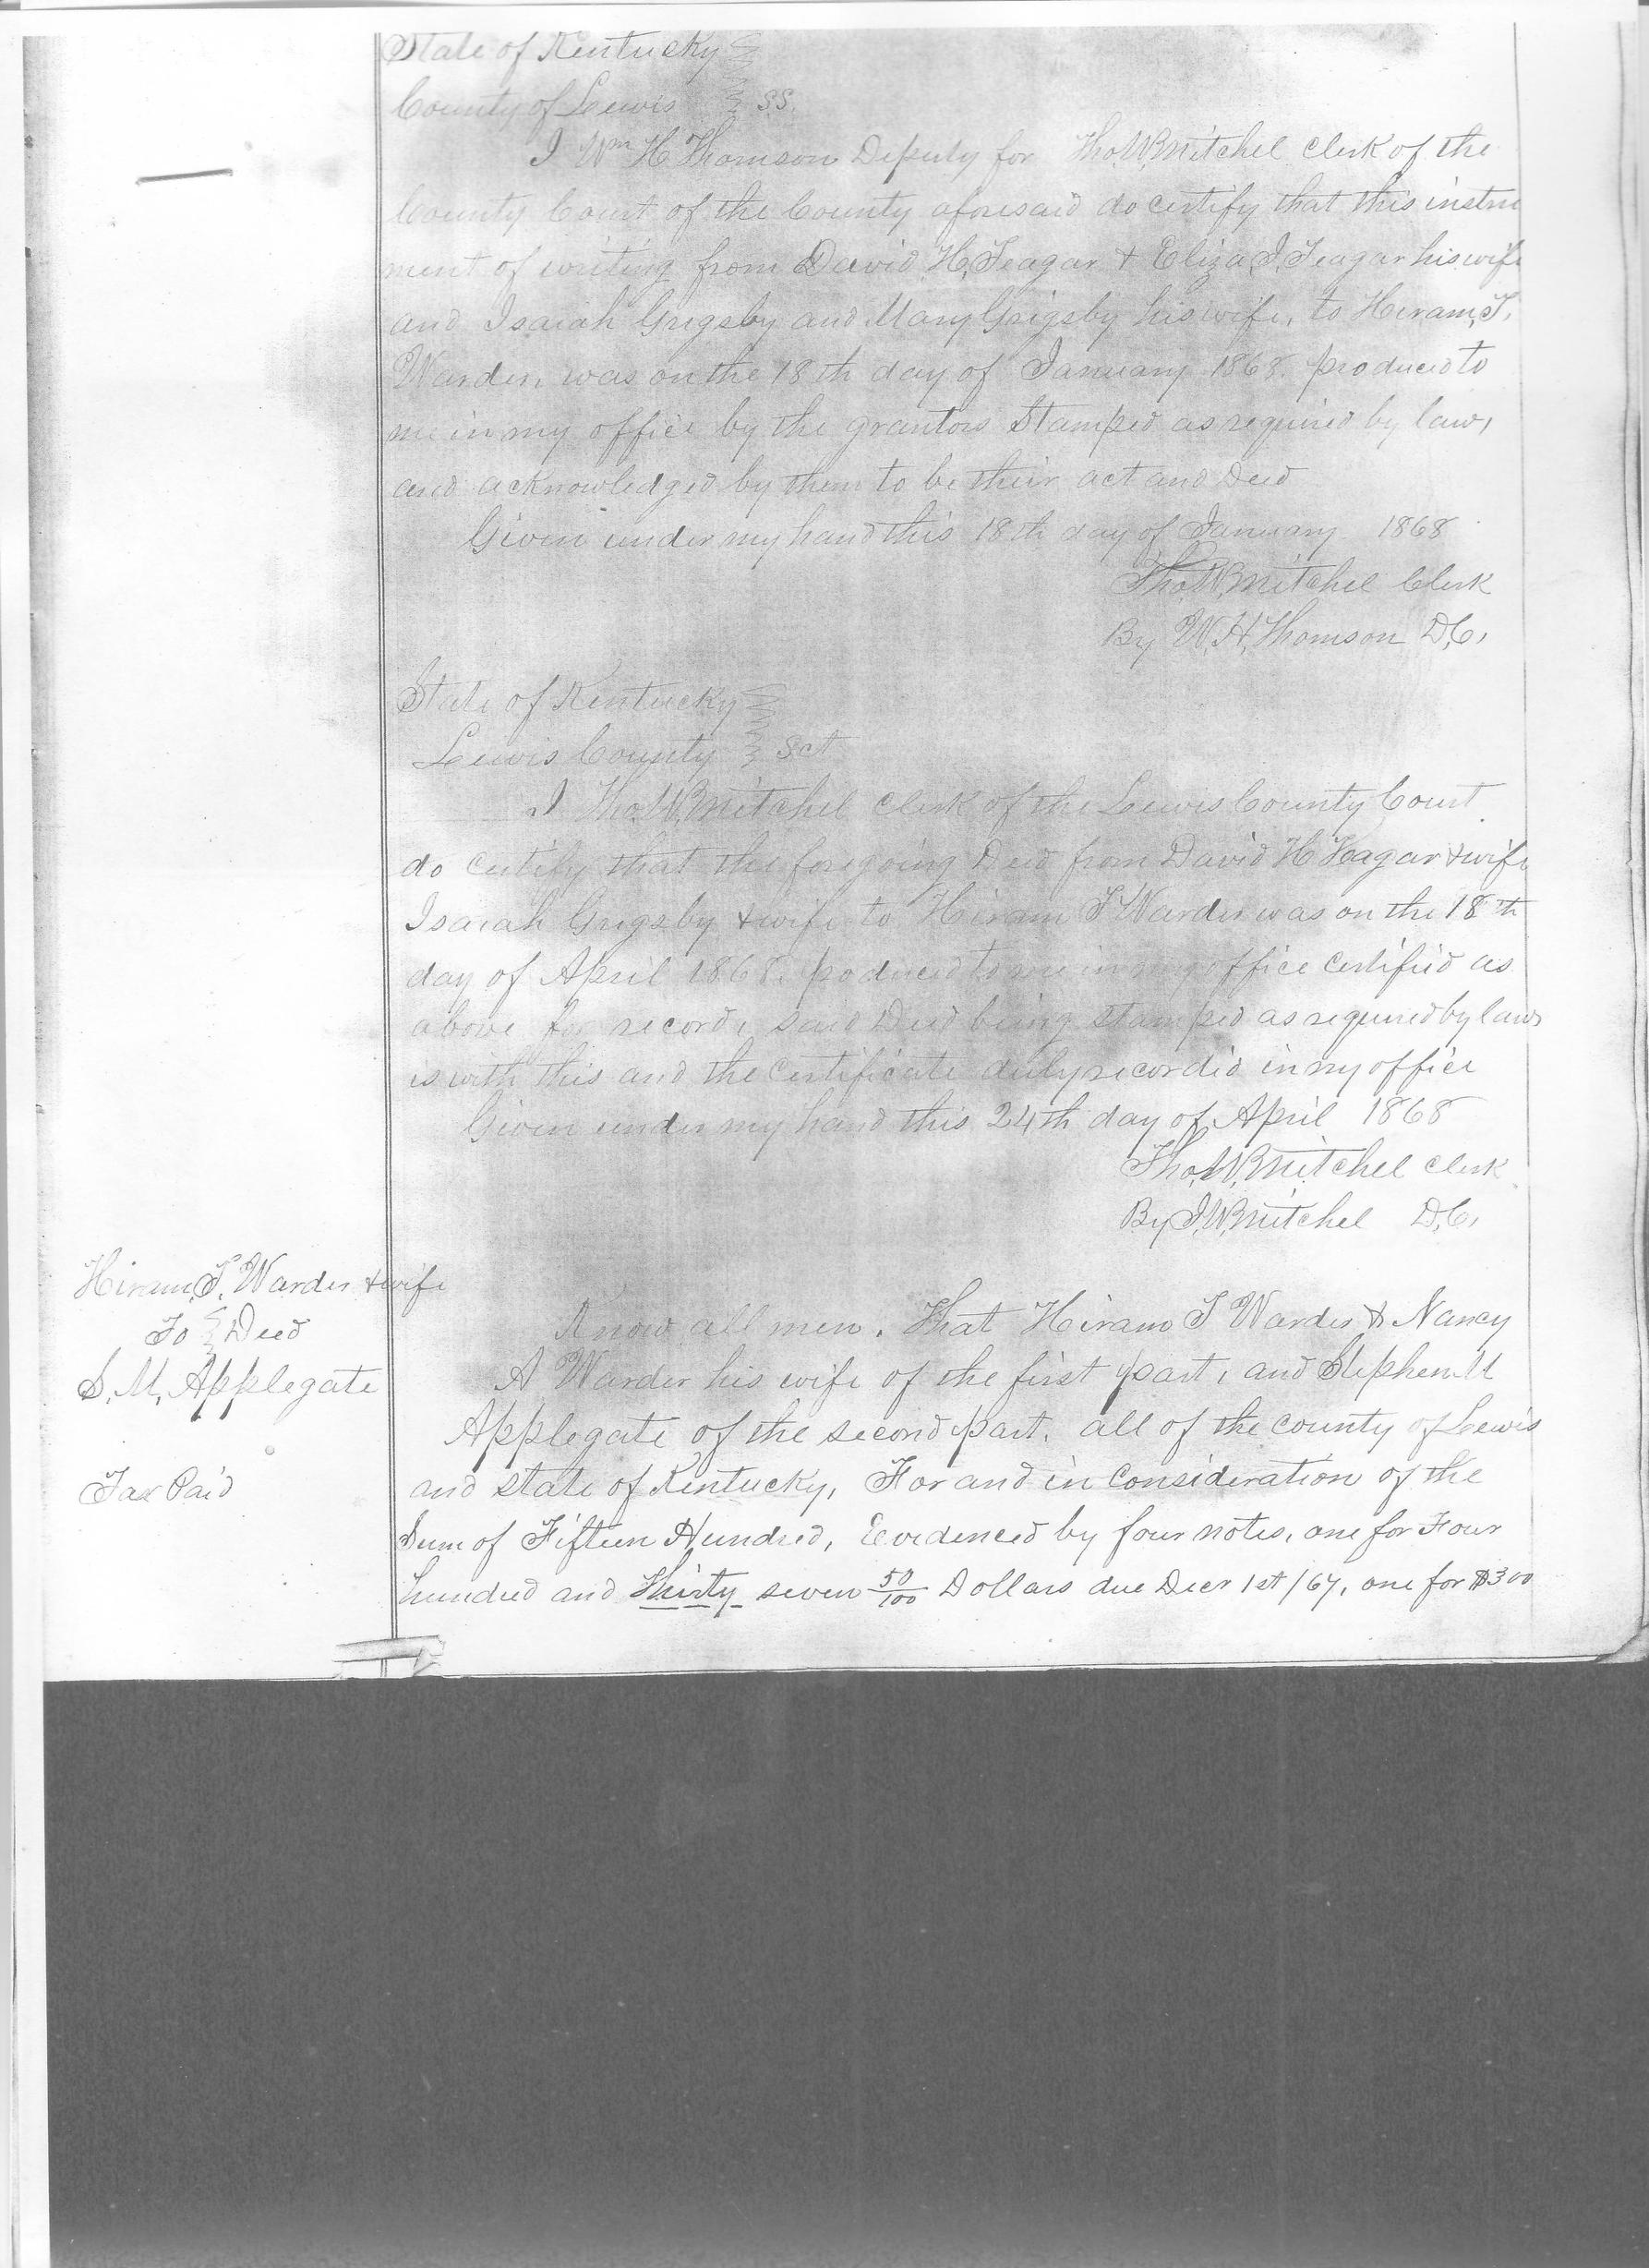 State of Kentucky
County of Lewis ss.
I Wm H Thomson Deputy for Tho. W. Mitchel clerk of the
County Court of the County aforesaid do certify that this instru
ment of writing from David H. Teagar & Eliza J. Teagar his wife
and Isaiah Grigsby and Mary Grigsby his wife, to Hiram, T,
Warder, was on the 18th day of January 1868. produced to
me in my office by the grantors Stamped as required by law,
and acknowledged by them to be their act and Deed
Given under my hand this 18th day of January 1868
Tho. W. Mitchel Clerk
By W. H. Thomson D.C,
State of Kentucky
Lewis County Sct
I Tho. W. Mitchel clerk of the Lewis County Court
do certify that the foregoing Deed from David H Teagar & wife
Isaiah Grigsby & wife to Hiram T Warder was on the 18th
day of April 1868. produced to me in my office certified as
above for record, said Deed being stamped as required by law
is with this and the certificate duly recorded in my office
Given under my hand this 24th day of April 1868
Tho. W. Mitchel clerk
By J. W. Mitchel D.C,
Hiram, T, Warder & wife
To Deed
S. M. Applegate
Tax Paid
Know all men. That Hiram T Warder & Nancy
A Warder his wife of the first part, and Stephen M
Applegate of the second part. all of the county of Lewis
and state of Kentucky, For and in consideration of the
Sum of Fifteen Hundred, Evidenced by four notes, one for Four
hundred and Thirty seven 50/100 Dollars due Decr 1st /67, one for $300